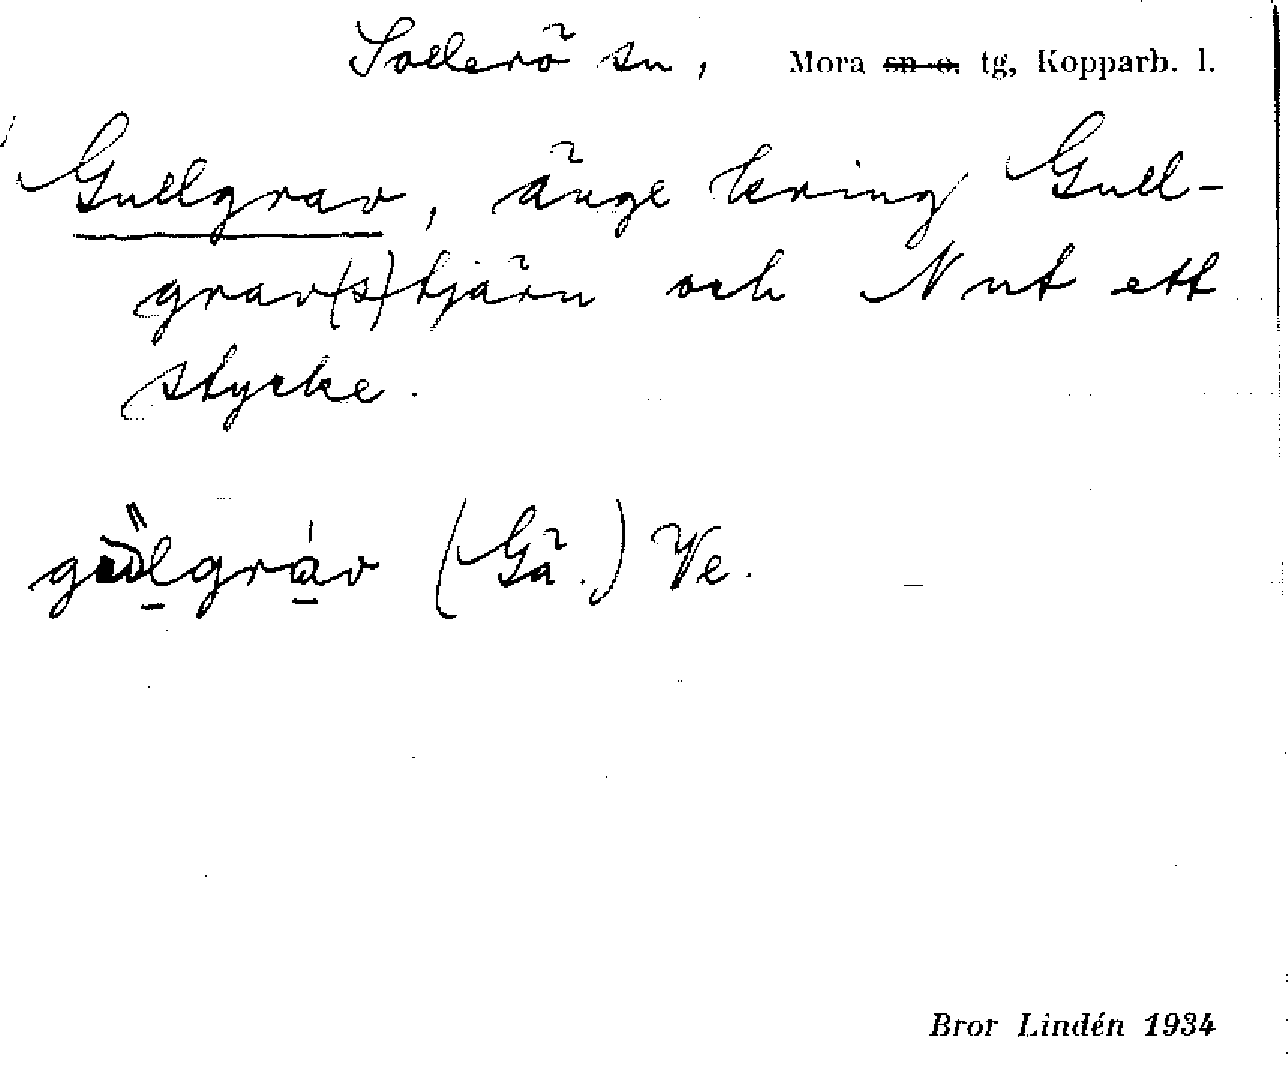 Sollerö sn, Mora sn o. tg, Kopparb. l.
Gullgrav, änge kring Gull-
grav(s)tjärn och N nut ett
stycke.
(Gä.) Ve.
Bror Lindén 1934